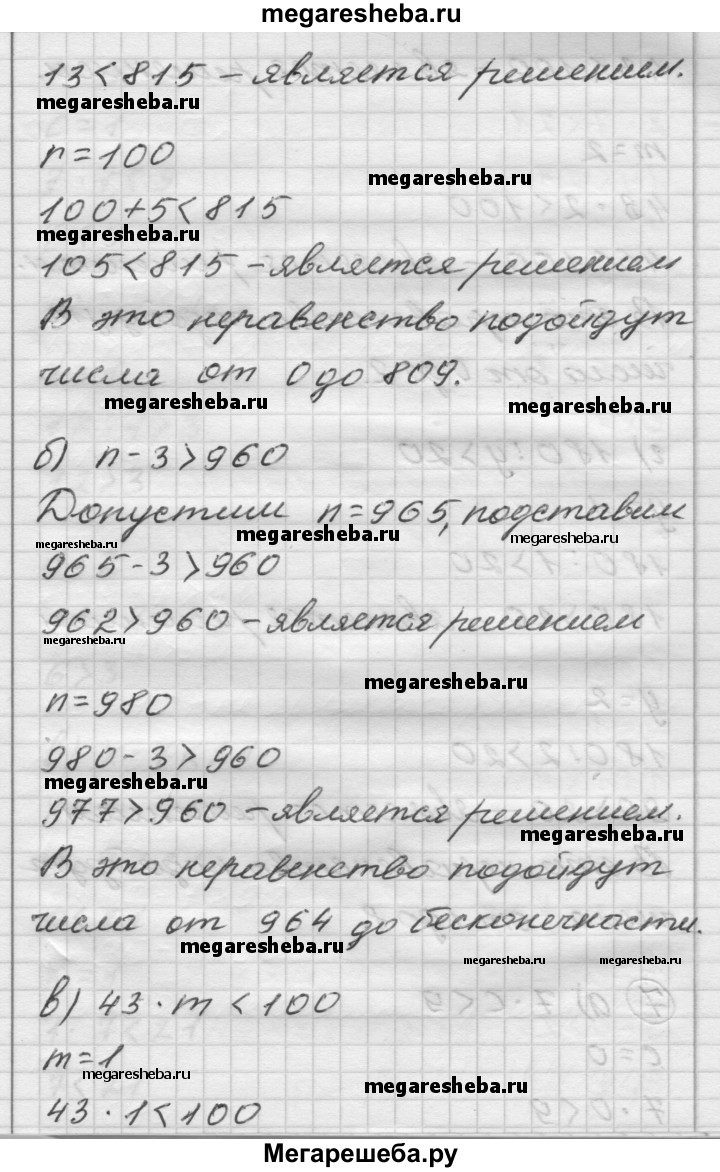 megaresheba.ru
13 < 815 – является решением.
megaresheba.ru
n = 100
megaresheba.ru
100 + 5 < 815
megaresheba.ru
105 < 815 – является решением
В это неравенство подойдут
числа от 0 до 809.
megaresheba.ru
megaresheba.ru
б) n - 3 > 960
Допустим n = 965, подставим
megaresheba.ru
megaresheba.ru
megaresheba.ru
965 - 3 > 960
962 > 960 – является решением
megaresheba.ru
megaresheba.ru
n = 980
980 - 3 > 960
megaresheba.ru
977 > 960 – является решением.
megaresheba.ru
В это неравенство подойдут
числа от 964 до бесконечности.
megaresheba.ru
megaresheba.ru
megaresheba.ru
в) 43 · m < 100
m = 1
megaresheba.ru
megaresheba.ru
43 · 1 < 100
Мегарешеба.ру